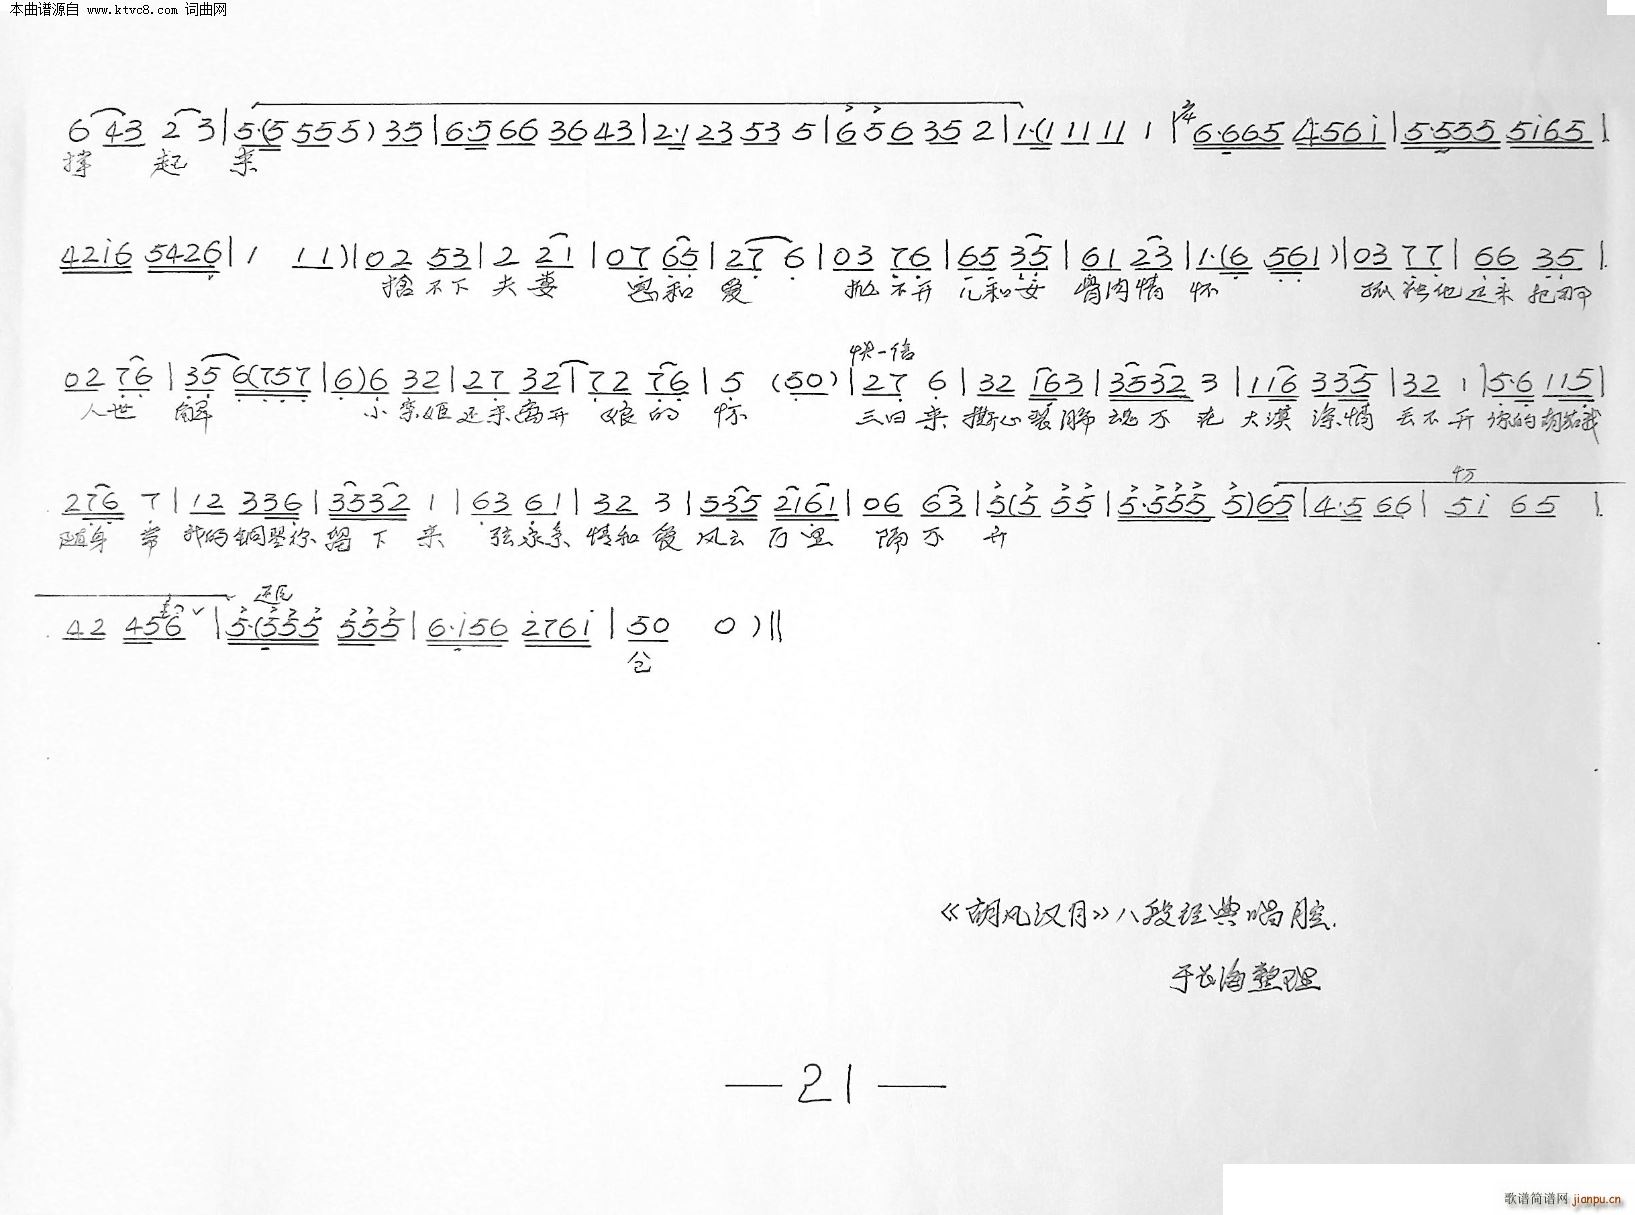 本曲谱源自 www.ktvc8.com 词曲网
6 43 2 3 | 5·(5 55 5) 35 | 6·5 66 36 43 | 2·1 23 53 5 | 6 56 35 2 | 1·(1 11 11 1 | 2/4 6·665 456i | 5·555 5i65 |
撑 起 来
42i6 5426 | 1 11) | 02 53 | 2 21 | 07 65 | 27 6 | 03 76 | 65 35 | 61 23 | 1·(6 561) | 03 77 | 66 35 |
捨不下 夫妻 恩和 爱 抛不开 儿和女 骨肉情 怀 孤独他 还未把那
02 76 | 35 6(757 | 6)6 32 | 27 32 | 72 76 | 5 (50) | 快一倍 27 6 | 32 163 | 3532 3 | 116 335 | 32 1 | 5·6 115 |
人世 解 小 栾姬 还未离开 娘的 怀 三日来 撕心裂肺 魂不 在 大漠 深情 丢不开 你的胡笳我
276 7 | 12 336 | 3532 1 | 63 61 | 32 3 | 535 2161 | 06 63 | 5(5 55 | 5·555 5)65 | 4·5 66 | 5i 65 |
随身 带 我的铜 你 留下来 弦永系 情和爱 风云万里 隔不开
42 456 | 5·(555 555 | 6·i56 276i | 50 0 ) ‖
仓
《胡风汉月》八段经典唱腔.
于长海整理
— 21 —
歌谱简谱网 jianpu.cn